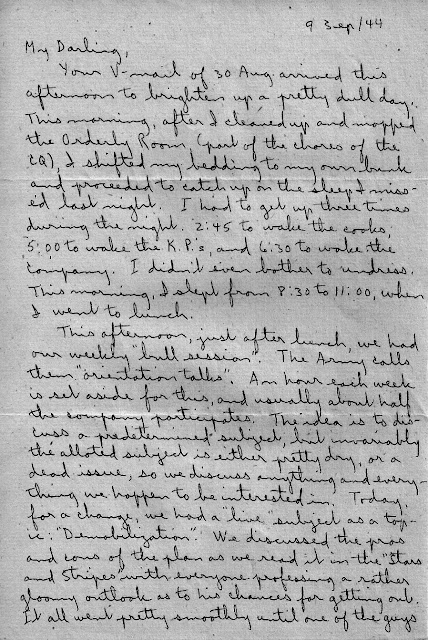 9 Sep/44
My Darling,
Your V-mail of 30 Aug arrived this
afternoon to brighten up a pretty dull day.
This morning, after I cleaned up and mopped
the Orderly Room, (part of the chores of the
CQ), I shifted my bedding to my own bunk
and proceeded to catch up on the sleep I miss-
ed last night. I had to get up three times
during the night. 2:45 to wake the cooks,
5:00 to wake the K.P.'s, and 6:30 to wake the
Company. I didn't even bother to undress.
This morning, I slept from 8:30 to 11:00, when
I went to lunch.
This afternoon, just after lunch, we had
our weekly "bull session". The Army calls
them "orientation talks". An hour each week
is set aside for this, and usually about half
the company participates. The idea is to dis-
cuss a predetermined subject, but invariably
the alloted subject is either pretty dry, or a
dead issue, so we discuss anything and every-
thing we happen to be interested in. Today,
for a change, we had a "live" subject as a top-
ic: "Demobilization". We discussed the pros
and cons of the plan as we read it in the "Stars
and Stripes" with everyone professing a rather
gloomy outlook as to his chances for getting out.
It all went pretty smoothly until one of the guys